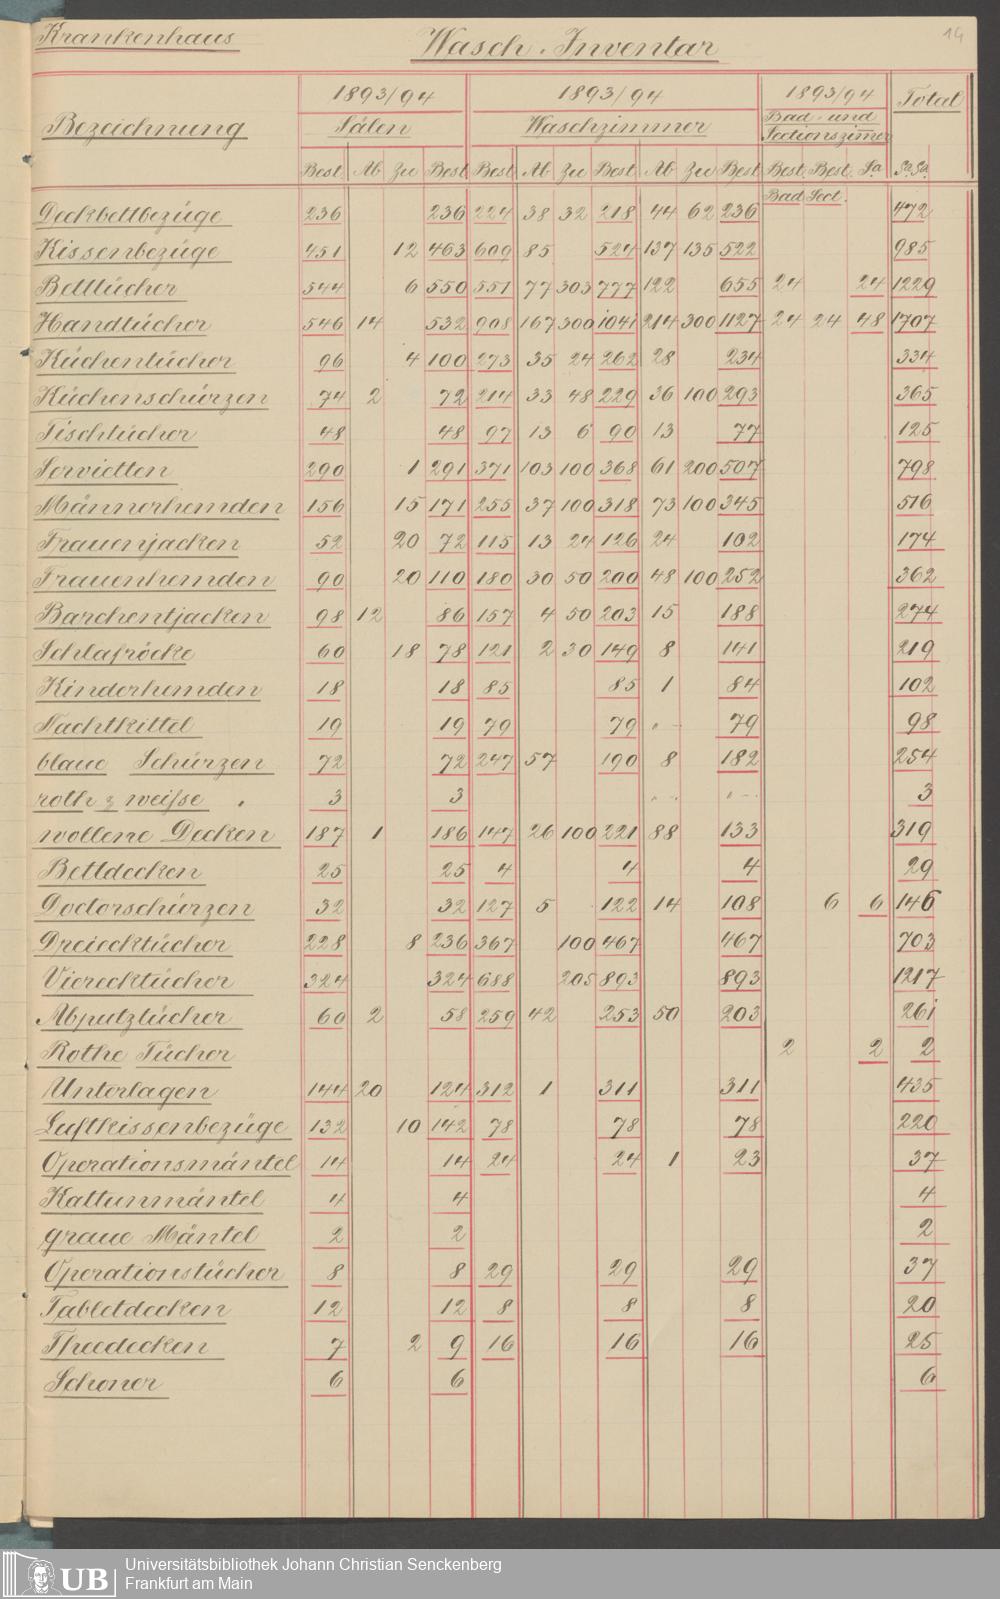 14
Krankenhaus
Wasch-Inventar
1893/94 1893/94 1893/94 Total
Bezeichnung Sälen Waschzimmer Bad- und
Sectionszimmer
Best. Ab Zu Best. Best. Ab Zu Best. Ab Zu Best. Best. Best. Sa Sa Sa.
Bad Sect.
Deckbettbezüge 236 236 224 38 32 218 44 62 236 472
Kissenbezüge 451 12 463 609 85 524 137 135 522 985
Betttücher 544 6 550 551 77 303 777 122 655 24 24 1229
Handtücher 546 14 532 908 167 300 1041 214 300 1127 24 24 48 1707
Küchentücher 96 4 100 273 35 24 262 28 234 334
Küchenschürzen 74 2 72 214 33 48 229 36 100 293 365
Tischtücher 48 48 97 13 6 90 13 77 125
Servietten 290 1 291 371 103 100 368 61 200 507 798
Männerhemden 156 15 171 255 37 100 318 73 100 345 516
Frauenjacken 52 20 72 115 13 24 126 24 102 174
Frauenhemden 90 20 110 180 30 50 200 48 100 252 362
Barchentjacken 98 12 86 157 4 50 203 15 188 274
Schlafröcke 60 18 78 121 2 30 149 8 141 219
Kinderhemden 18 18 85 85 1 84 102
Nachtkittel 19 19 79 79 " - 79 98
blaue Schürzen 72 72 247 57 190 8 182 254
roth & weisse " 3 3 " - " - 3
wollene Decken 187 1 186 147 26 100 221 88 133 319
Bettdecken 25 25 4 4 4 29
Doctorschürzen 32 32 127 5 122 14 108 6 6 146
Dreiecktücher 228 8 236 367 100 467 467 703
Vierecktücher 324 324 688 205 893 893 1217
Abputztücher 60 2 58 259 42 253 50 203 261
Rothe Tücher 2 2 2
Unterlagen 144 20 124 312 1 311 311 435
Luftkissenbezüge 132 10 142 78 78 78 220
Operationsmäntel 14 14 24 24 1 23 37
Kattunmäntel 4 4 4
graue Mäntel 2 2 2
Operationstücher 8 8 29 29 29 37
Tabletdecken 12 12 8 8 8 20
Theedecken 7 2 9 16 16 16 25
Schoner 6 6 6
UB
Universitätsbibliothek Johann Christian Senckenberg
Frankfurt am Main